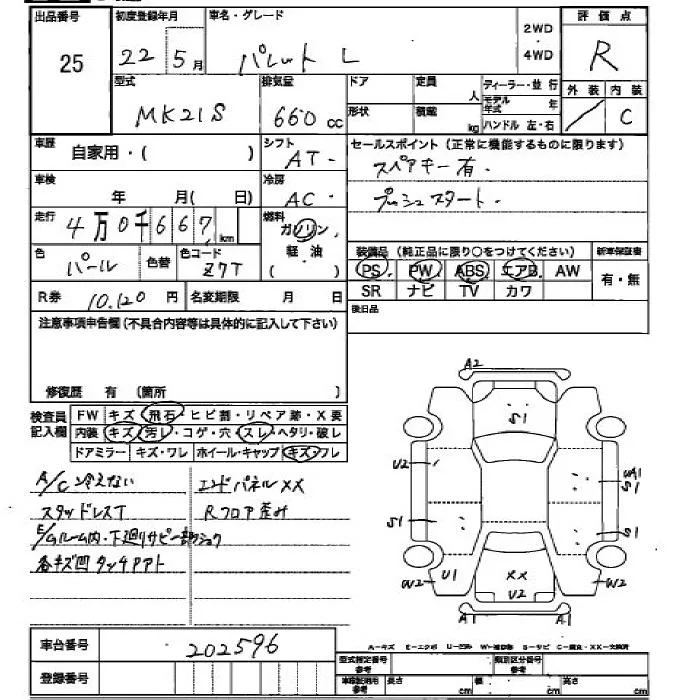 出品番号 初度登録年月 車名・グレード 評価点
25 22年5月 パレット L 2WD・4WD R
型式 排気量 ドア 定員 人 ディーラー・並行 外装 内装
MK21S 660cc 形状 積載 kg モデル年式 年 ハンドル 左・右 / C
車歴 自家用・( ) シフト AT- セールスポイント(正常に機能するものに限ります)
スペアキー有・
車検 年 月( 日) 冷房 AC- プッシュスタート・
走行 4万0千667km 燃料 ガソリン・軽・油( )
色 パール 色替 色コード Z7T 装備品(純正品に限り○をつけてください) 新車保証書
PS PW ABS エアB AW 有・無
R券 10.120円 名変期限 月 日 SR ナビ TV カワ
注意事項申告欄(不具合内容等は具体的に記入して下さい) 後日品
修復歴 有 (箇所 )
検査員記入欄 FW キズ・飛石・ヒビ割・リペア跡・X要
内装 キズ・汚レ・コゲ・穴・スレ・ヘタリ・破レ
ドアミラー キズ・ワレ ホイール・キャップ キズ・フレ
A/C冷えない エンドパネルXX
スタッドレスT Rフロア歪み
E/Gルーム内・下廻りサビ一部
各キズ凹タッチアト
A2
S1
U2
UA1
S1
S1
S1
W2 U1 XX W2
U2
A1 A1
車台番号 202596
A-キズ E-エクボ U-凹み W-補修跡 S-サビ
登録番号 型式指定番号 参考 類別区分番号 参考
参考 長さ cm 幅 cm 高さ cm